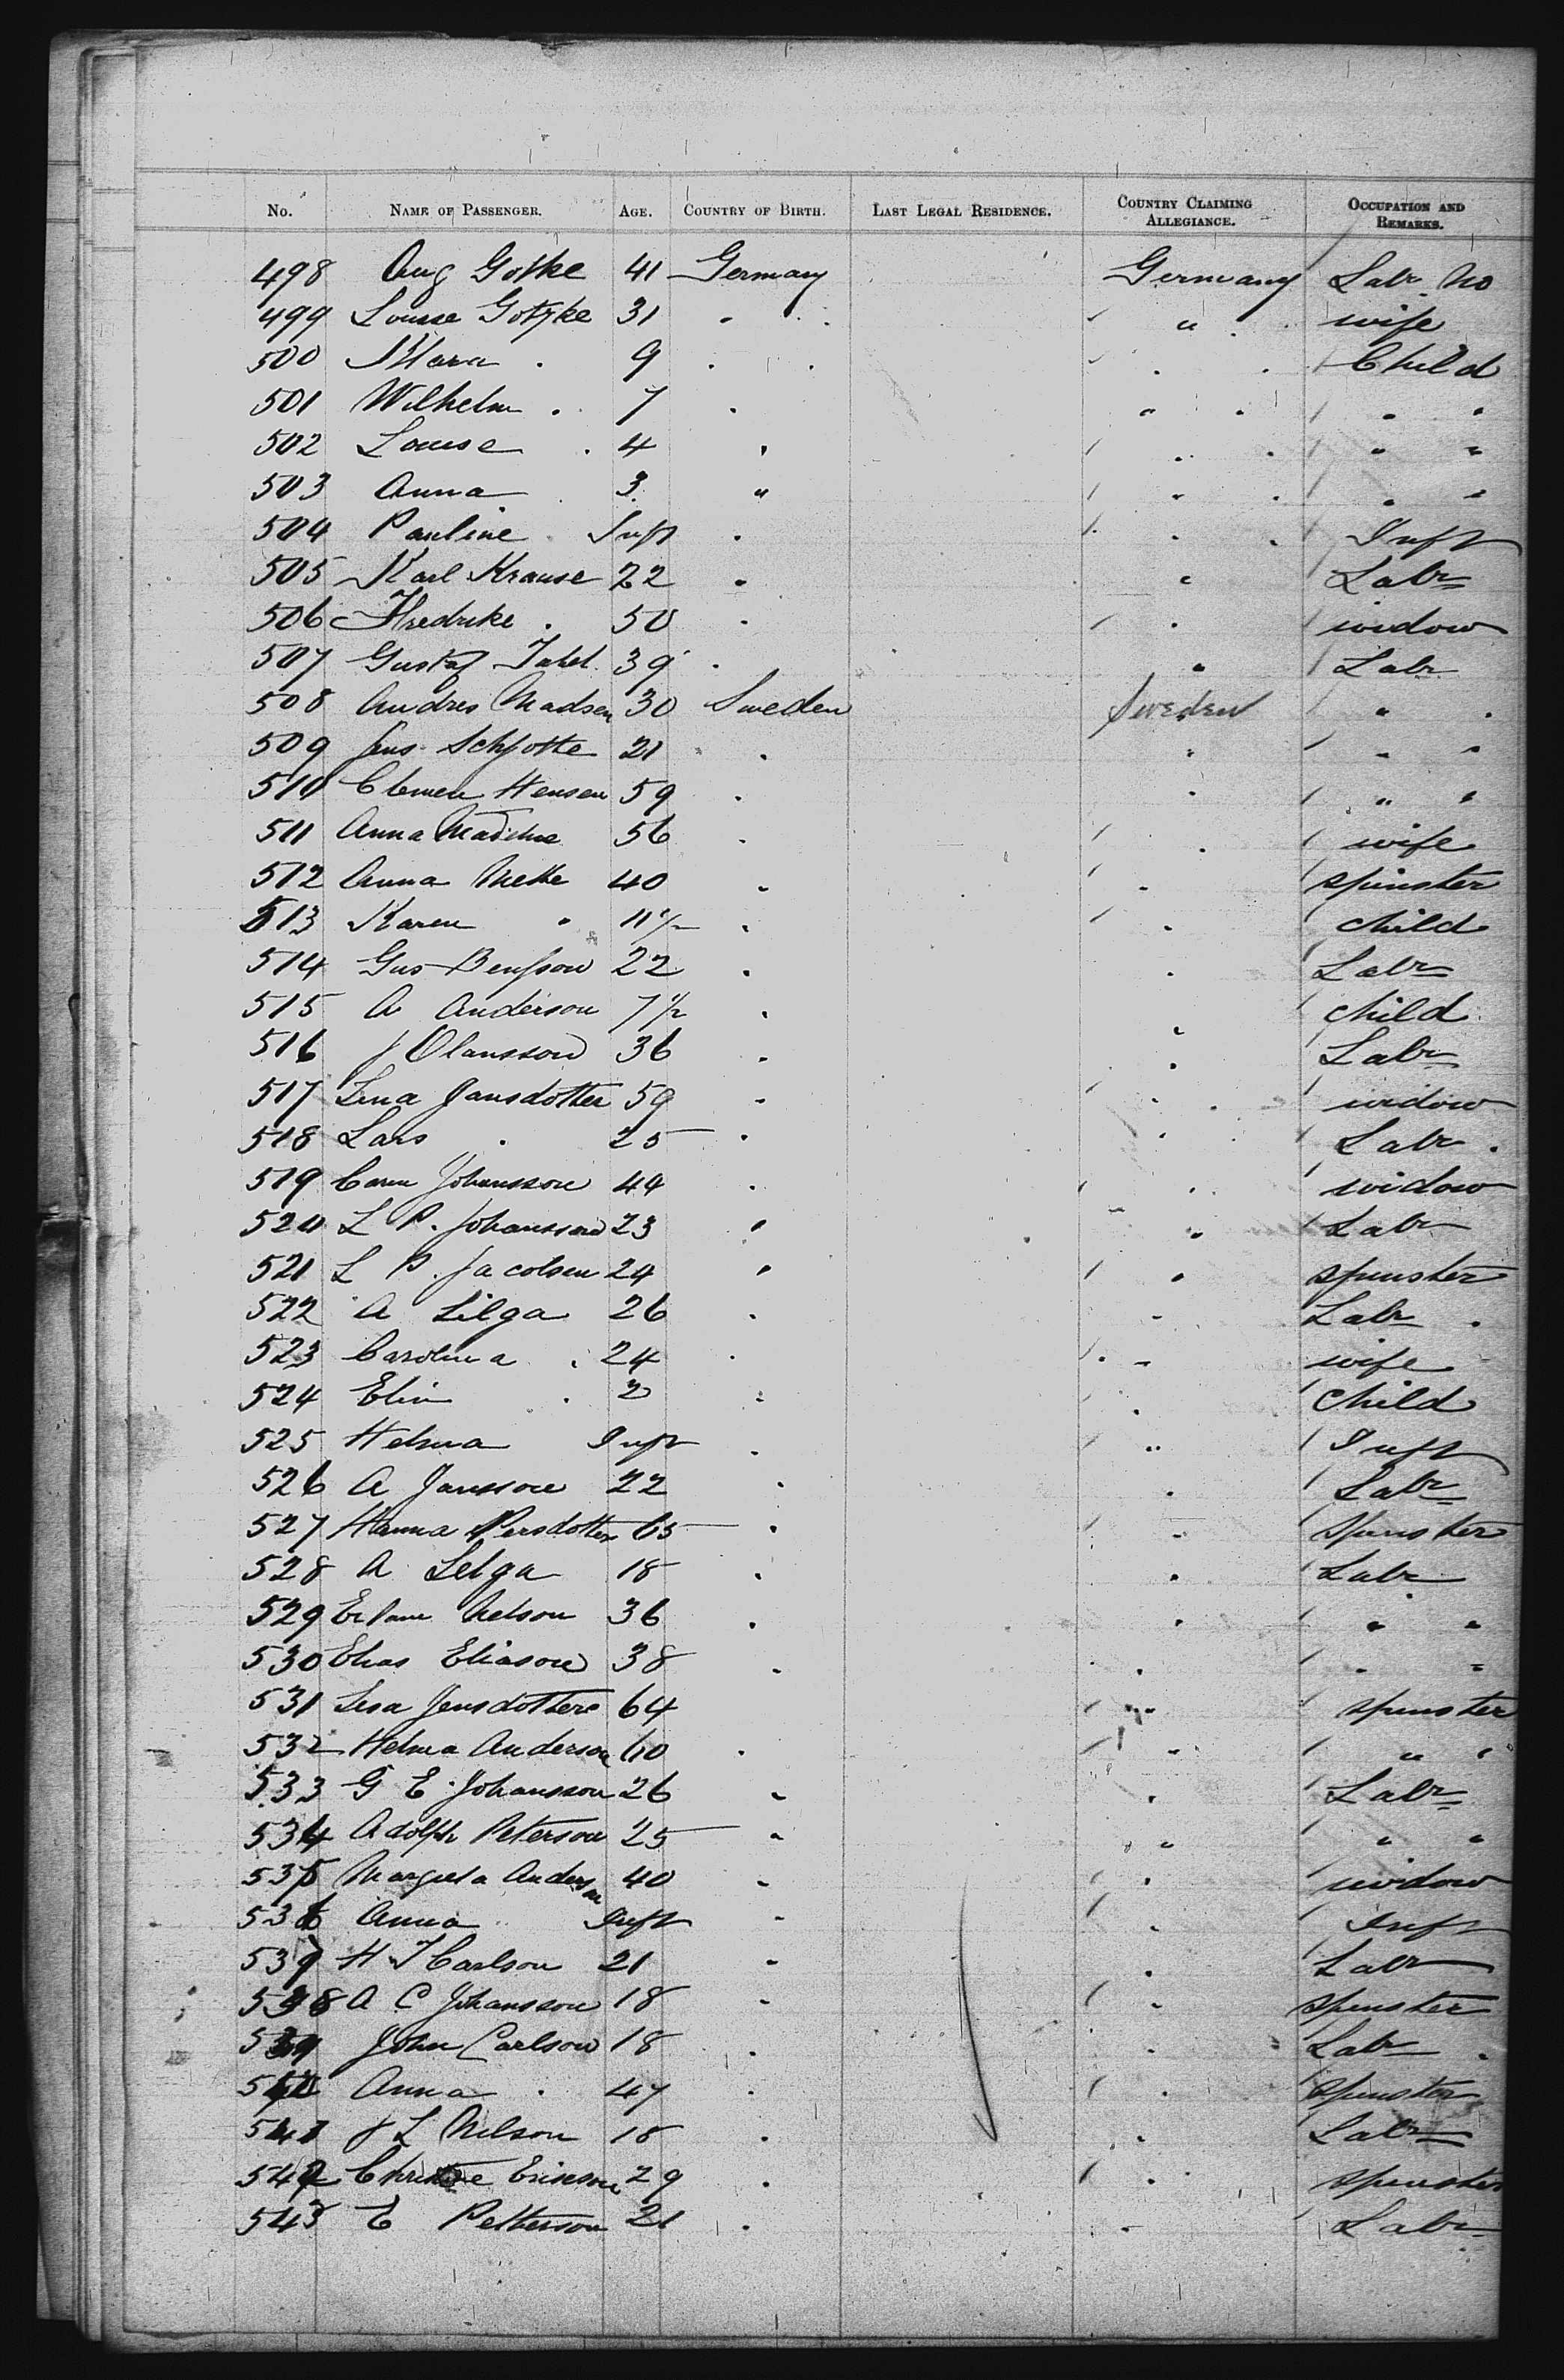 No. NAME OF PASSENGER. AGE. COUNTRY OF BIRTH. LAST LEGAL RESIDENCE. COUNTRY CLAIMING ALLEGIANCE. OCCUPATION AND REMARKS.
498 Aug Gotke 41 Germany Germany Labr No
499 Louise Gotzke 31 " " wife
500 Mara . 9 . . Child
501 Wilhelm . 7 . " " "
502 Louise . 4 " " " "
503 Anna 3 " " " "
504 Pauline Inft . . Inft
505 Karl Krause 22 " " Labr
506 Fredrike . 50 . . widow
507 Gustaf 39 . " Labr
508 Andres Madsen 30 Sweden Sweden " .
509 Jens Schjotte 21 . " " "
510 Clemen Hensen 59 . . " "
511 Anna 56 . . wife
512 Anna Mette 40 . . spinster
513 Karen " 11 1/2 . . child
514 Gus Bengson 22 . . Labr
515 A Anderson 7 1/2 . child
516 J Olansson 36 . . Labr
517 Lina Jansdotter 59 . . widow
518 Lars . 25 . . Labr .
519 Caren Johansson 44 . . widow
520 L P. Johansson 23 " " Labr
521 L P. Jacobsen 24 " " spinster
522 A Lilga 26 . . Labr .
523 Carolina . 24 . . wife
524 Elin . 2 . . Child
525 Helma Inft . " Inft
526 A Jansson 22 . . Labr
527 Hanna Persdotter 65 . . Spinster
528 A Lelga 18 . . Labr
529 Nelson 36 . . " "
530 Elias Eliason 38 . . " "
531 Lisa Jensdotter 64 " spinster
532 Helma Anderson 60 . . " "
533 G E Johansson 26 . . Labr
534 Adolph Peterson 25 " " " "
535 Margreta Anderson 40 . . widow
536 Anna Inft . . Inft
537 H J Carlson 21 . . Labr
538 A C Johansson 18 . . Spinster
539 John Carlson 18 . . Labr .
540 Anna . 47 . . Spinster
541 J L Nilson 18 . . Labr
542 Christine Ericson 29 . . spinster
543 E Petterson 21 . . Labr